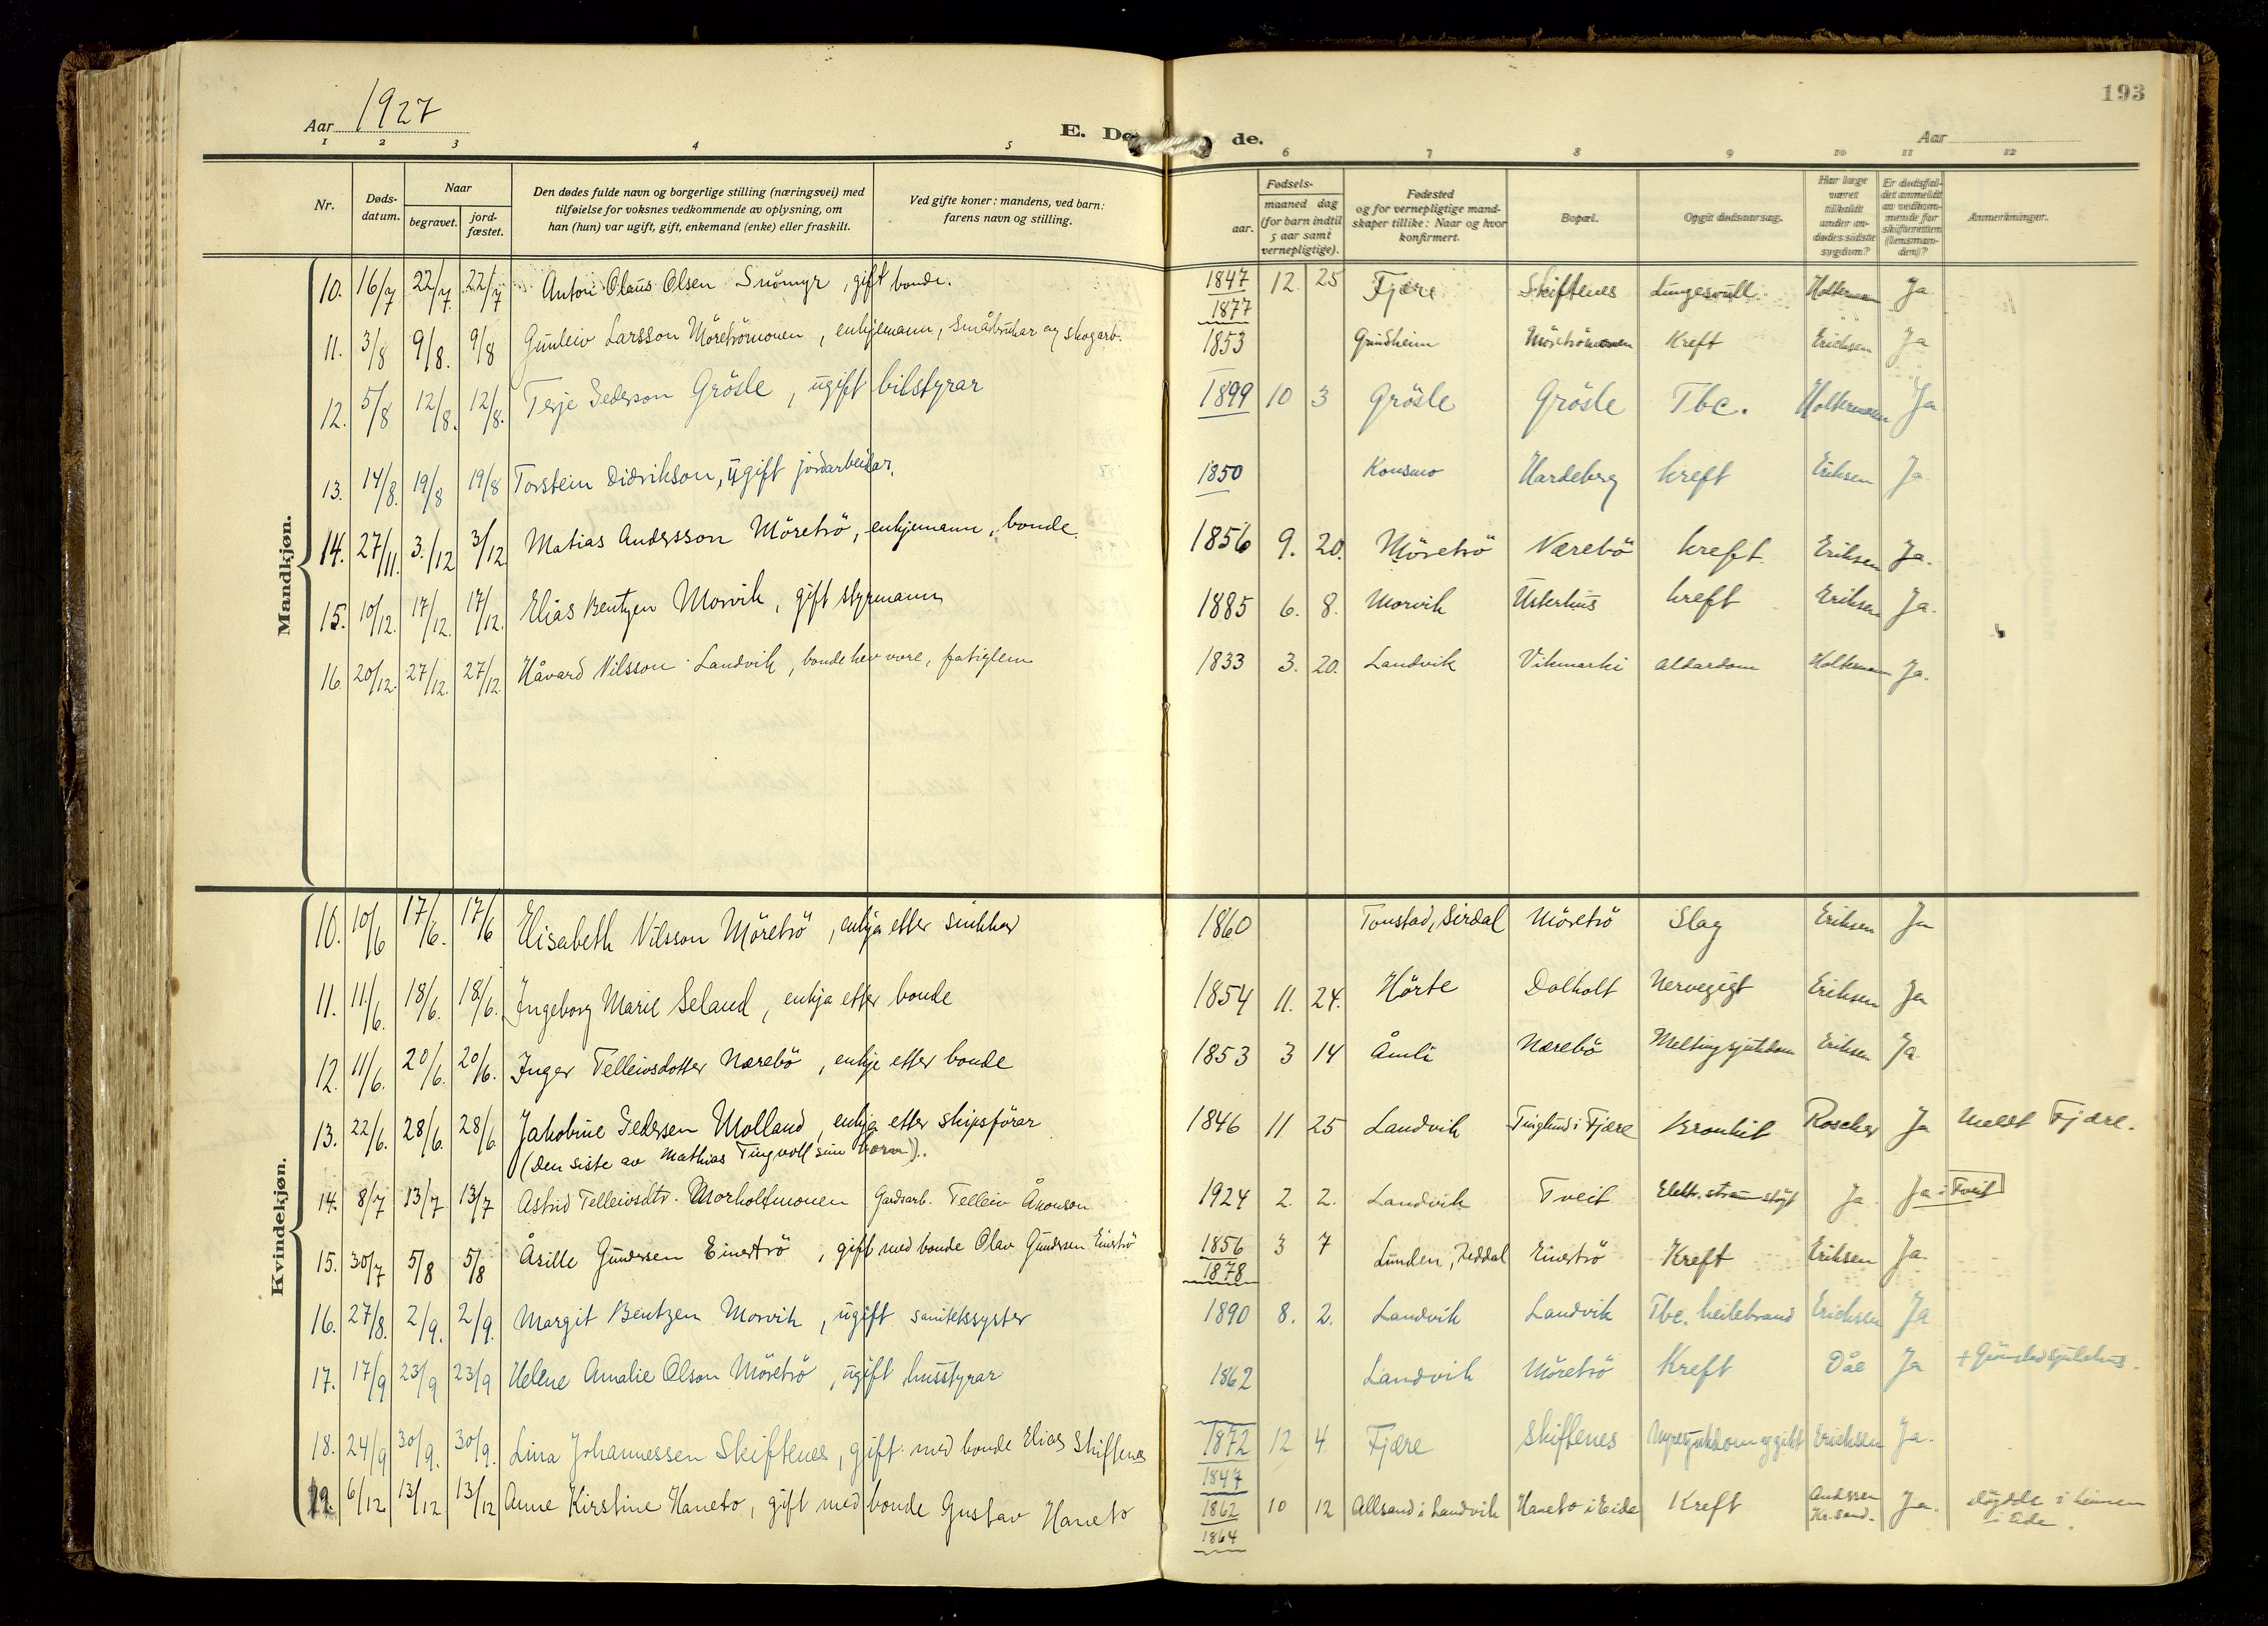 193
Aar 1927
E. Dø de.
Aar
1 2 3 4 5 6 7 8 9 10 11 12
Nr.
Døds-datum.
Naar
begravet.
jord-fæstet.
Den dødes fulde navn og borgerlige stilling (næringsvei) med
tilføielse for voksnes vedkommende av oplysning, om
han (hun) var ugift, gift, enkemand (enke) eller fraskilt.
Ved gifte koner: mandens, ved barn:
farens navn og stilling.
Fødsels-
aar. maaned dag
(for barn indtil
5 aar samt
vernepligtige).
Fødested
og for vernepligtige mand-
skaper tillike: Naar og hvor
konfirmert.
Bopæl.
Opgit dødsaarsag.
Har læge
været
tilkaldt
under an-
dødes sidste
sygdom?
Er dødsfal-
det anmeldt
av vedkom-
mende for
skifteretten
(lensman-
den)?
Anmerkninger.
Mandkjøn.
10. 16/7 22/7 22/7 Anton Olaus Olsen Snömyr, gift bonde. 1847 12 25 Fjære Skiftenes Lungesvull Holterman Ja
1877
11. 3/8 9/8. 9/8 Gunleiv Larsson Möretrömonen, enkjemann, småbrukar og skogarb. 1853 Grindheim Möretrömonen Kreft Erichsen Ja
12. 5/8 12/8. 12/8. Terje Pederson Grösle, ugift bilstyrar 1899 10 3 Grösle Grösle Tbc. Holterman Ja
13. 14/8. 19/8 19/8 Torstein Didrikson, ugift jordarbeidar. 1850 Konsmo Hardeberg kreft Eriksen Ja
14. 27/11. 3./12 3/12 Matias Andersson Möretrö, enkjemann, bonde. 1856 9. 20. Möretrö Nærebö kreft Eriksen Ja.
15. 10/12. 17/12. 17/12. Elias Bentzen Morvik, gift styrmann 1885 6. 8. Morvik Usterhus kreft Eriksen Ja.
16. 20/12. 27/12. 27/12. Håvard Nilsson Landvik, bonde hev vore, fatiglem 1833 3. 20. Landvik Vikmarki aldardom Holterman Ja.
Kvindekjøn.
10. 10/6 17/6. 17/6 Elisabeth Nilsson Möretrö, enkja etter snikkar 1860 Tonstad, Sirdal Möretrö Slag Eriksen Ja
11. 11/6. 18/6. 18/6. Ingeborg Marie Seland, enkja etter bonde 1854 11. 24. Hörte Dolholt Nervegigt Eriksen Ja
12. 11/6. 20/6. 20/6. Inger Telleivsdotter Nærebö, enkje etter bonde 1853 3 14 Åmli Nærebö Meltingsjukdom Eriksen Ja
13. 22/6. 28/6. 28/6 Jakobine Pedersen Molland, enkja etter skipsförar 1846 11 25 Landvik Tinglund i Fjære Bronkit Roscher Ja Meldt Fjære.
(Den siste av Mathias Tingvoll sine born).
14. 8/7 13/7 13/7 Astrid Telleivsdtr. Morholtmonen Gardsarb. Telleiv Åkonson 1924 2. 2. Landvik Tveit Elektr. straumstöyt Ja Ja i Tveit
15. 30/7 5/8 5/8 Åsille Gundersen Einertrö, gift med bonde Olav Gundersen Einertrö 1856 3 7 Lunden, Reddal Einertrö Kreft Eriksen Ja
1878
16. 27/8. 2/9. 2/9. Margit Bentzen Morvik, ugift sanitetssyster 1890 8. 2. Landvik Landvik Tbc. heilebrand Erichsen Ja
17. 17/9 23/9 23/9 Helene Amalie Olson Möretrö, ugift husstyrar 1862 Landvik Möretrö Kreft Dåe Ja + Grimstad sjukehus.
18. 24/9 30/9. 30/9. Lina Johannessen Skiftenes, gift med bonde Elias Skiftenes 1872 12 4 Fjære Skiftenes Nyresjukdom og gikt Erichsen Ja.
1847
19. 6/12 13/12 13/12 Anne Kirstine Haneto, gift med bonde Gustav Haneto 1862 10 12 Allsand i Landvik Haneto i Eide Kreft Andersen Kr.sand. Ja. döydde i heimen i Eide.
1864